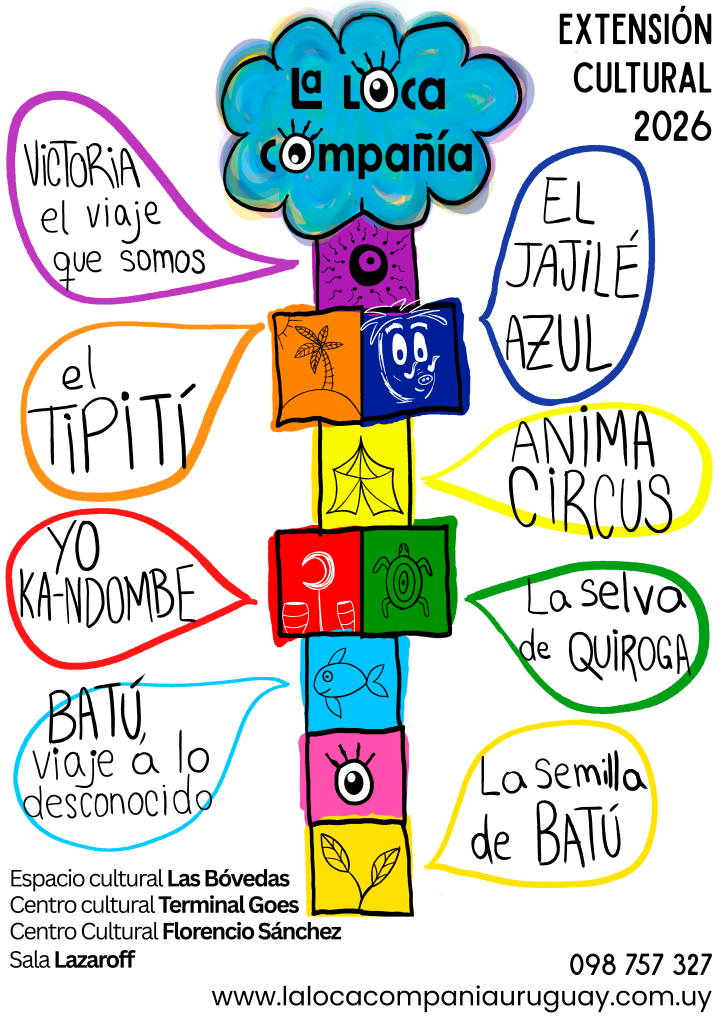 La Loca
compañía
EXTENSIÓN
CULTURAL
2026
VICTORIA
el viaje
que somos
EL
JAJILÉ
AZUL
el
TiPiTÍ
ANiMA
CiRCUS
YO
KA-NDOMBE
La selva
de QUiROGA
BATÚ,
viaje a lo
desconocido
La semilla
de BATÚ
Espacio cultural Las Bóvedas
Centro cultural Terminal Goes
Centro Cultural Florencio Sánchez
Sala Lazaroff
098 757 327
www.lalocacompaniauruguay.com.uy